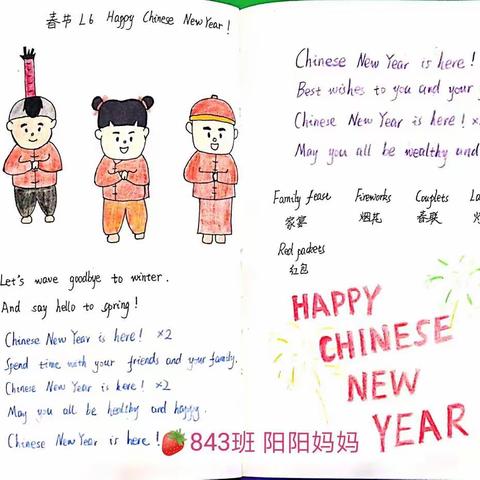 春节 L6 Happy Chinese New Year!
Let's wave goodbye to winter.
And say hello to spring!
Chinese New Year is here! ×2
Spend time with your friends and your family.
Chinese New Year is here! ×2
May you all be healthy and happy.
Chinese New Year is here!
Chinese New Year is here!
Best wishes to you and your
Chinese New Year is here! ×
May you all be wealthy and
Family fease Fireworks Couplets La
家宴 烟花 春联
Red packets
红包
HAPPY
CHINESE
NEW
YEAR
843班 阳阳妈妈